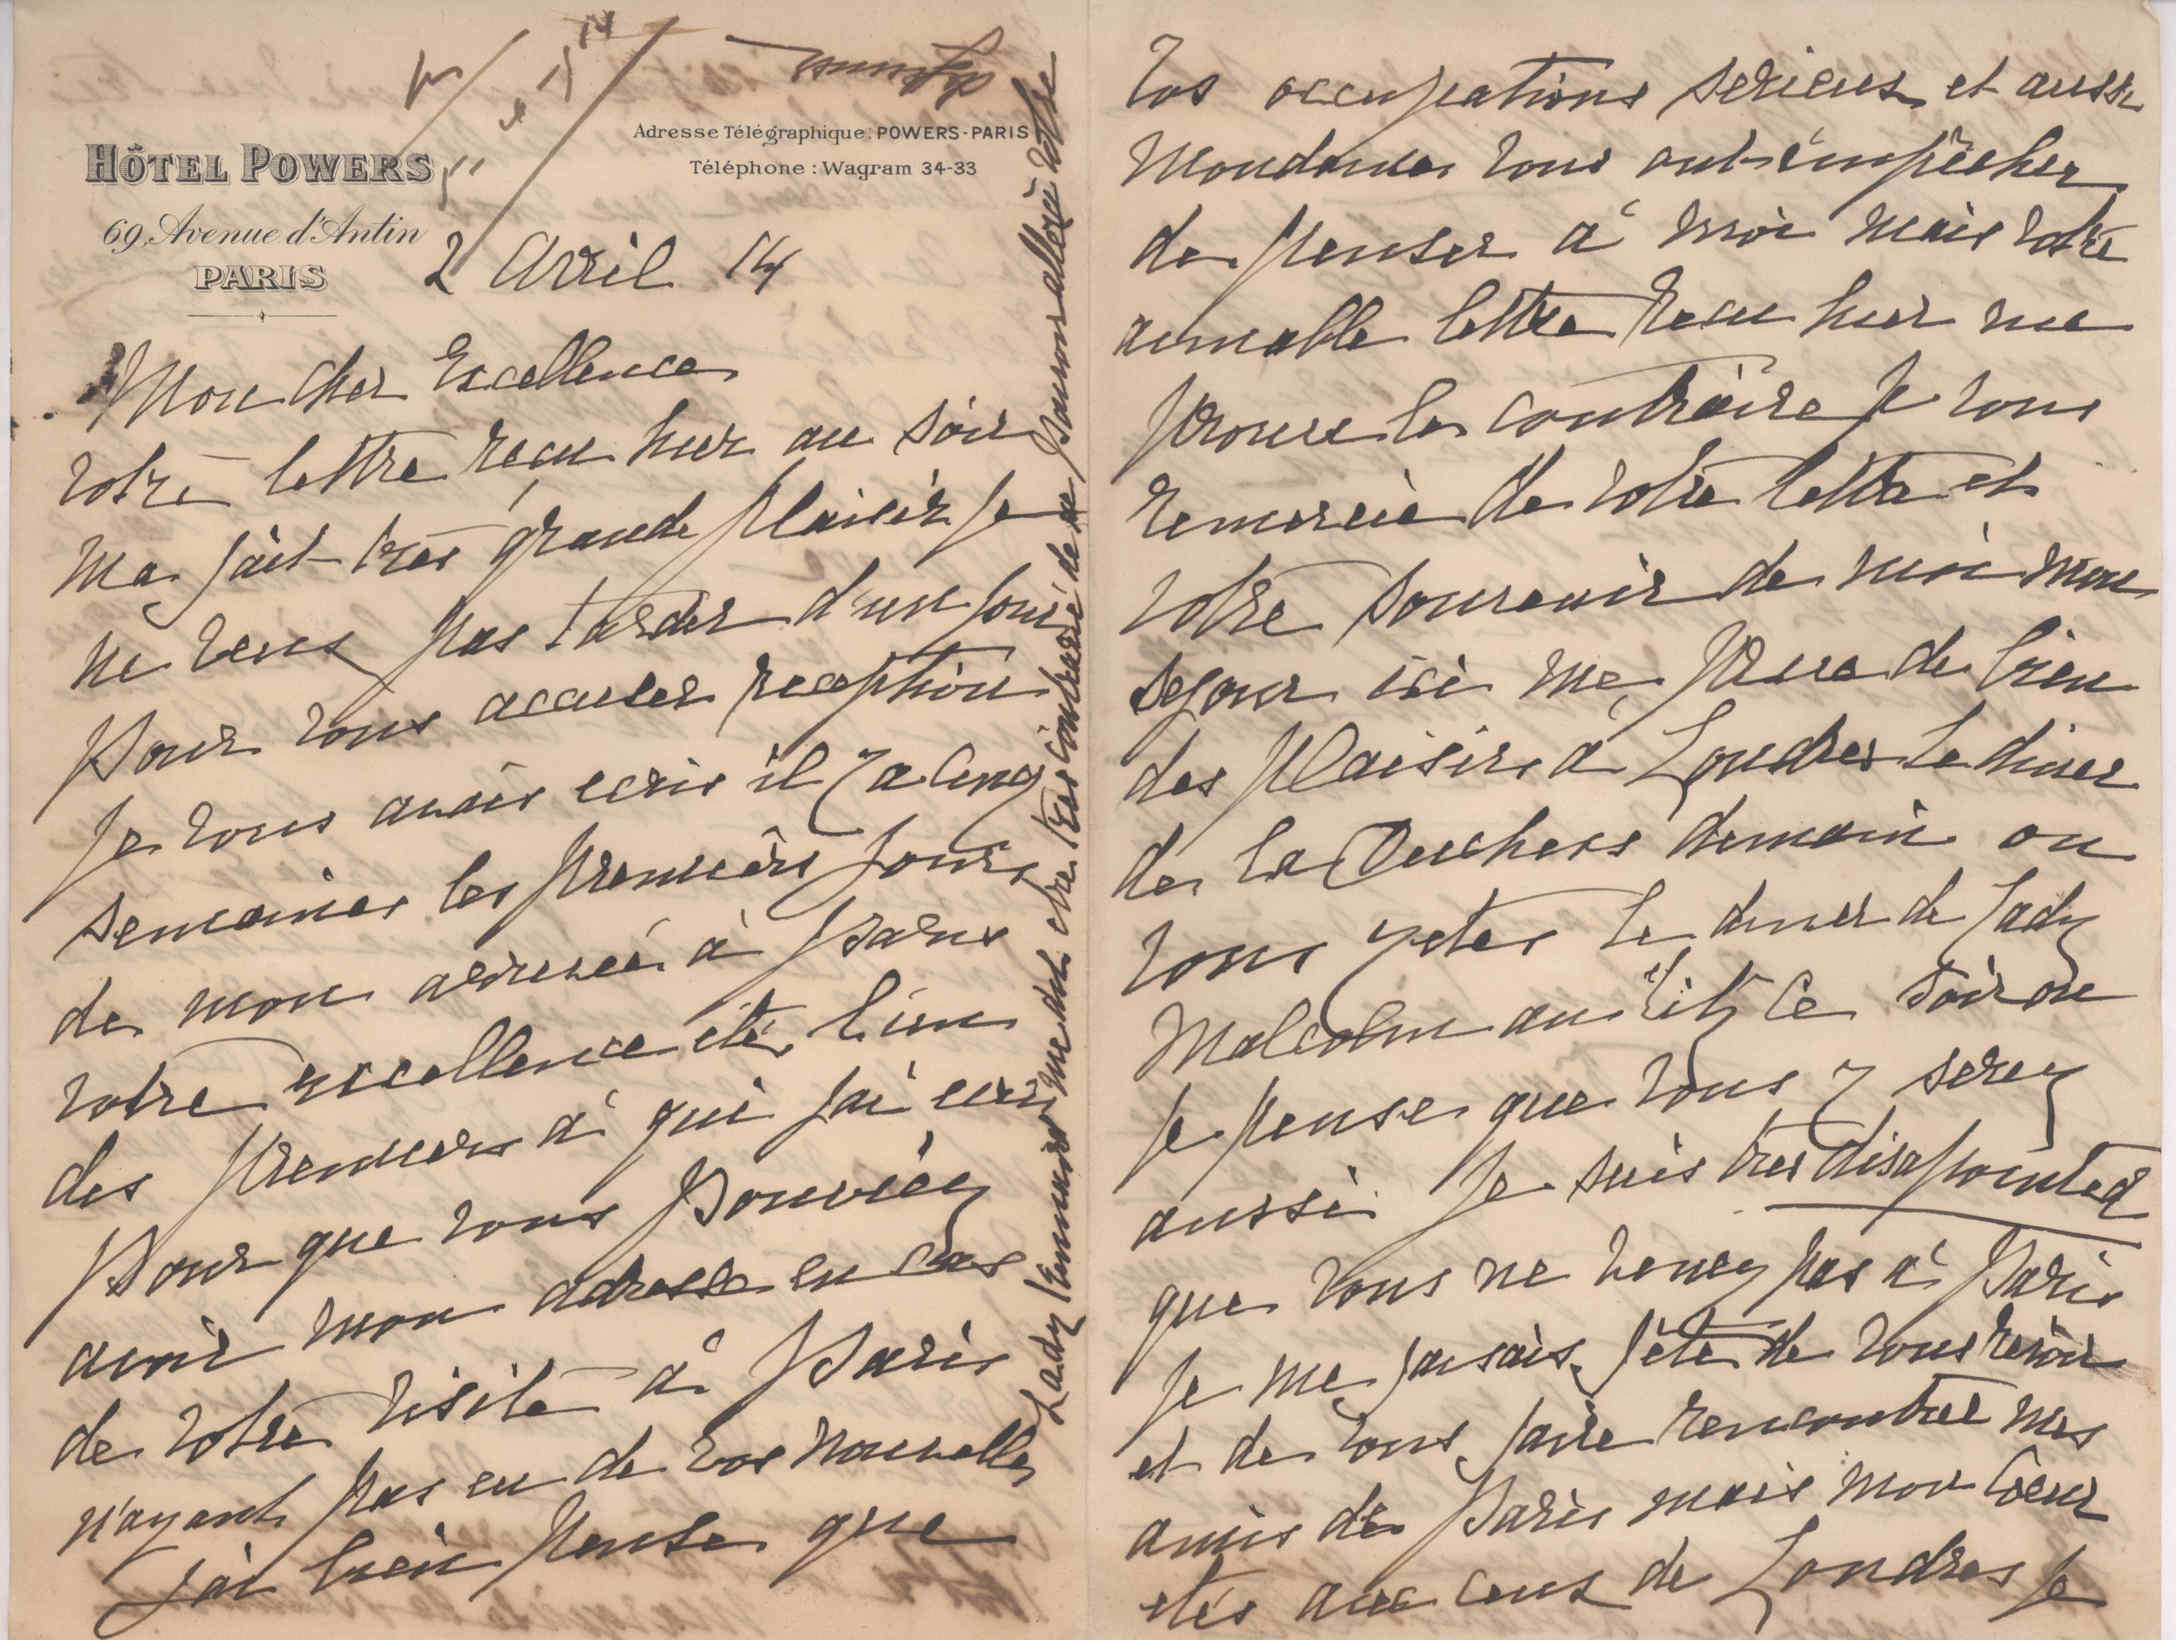 HÔTEL POWERS
69, Avenue d'Antin
PARIS
Adresse Télégraphique: POWERS-PARIS
Téléphone: Wagram 34-33
2 Avril 14
Mon cher Excellence
Votre lettre reçu hier au soir
ma fait très grande plaisir je
ne veux pas tarder d'un jour
pour vous accuser reception
Je vous avais ecris il y a cinq
semaines les premiers jours
de mon arrivée à Paris
votre excellence été l'un
des premiers à qui j'ai ecris
pour que vous pouviez
avoir mon adresse en cas
de votre visite à Paris
n'ayant pas eu de vos nouvelles
j'ai bien pensé que
vos occupations serieuses et aussi
mondaines vous ont empêcher
de penser à moi mais votre
aimable lettre recu hier me
prouve le contraire je vous
remercie de votre lettre et
votre souvenir de moi mon
sejour ici me prive de bien
des plaisirs à Londres le diner
de la Duchess demain ou
vous y etes le diner de Lady
Malcolm au Ritz ce soir ou
je pense que vous y serez
aussi Je suis tres disapointed
que vous ne venez pas à Paris
Je me faisais fête de vous revoir
et de vous faire rencontrer mes
amis de Paris mais mon coeur
etés avec ceux de Londres je
Lady
me dit etre tres contrarié de ne pouvoir aller à votre